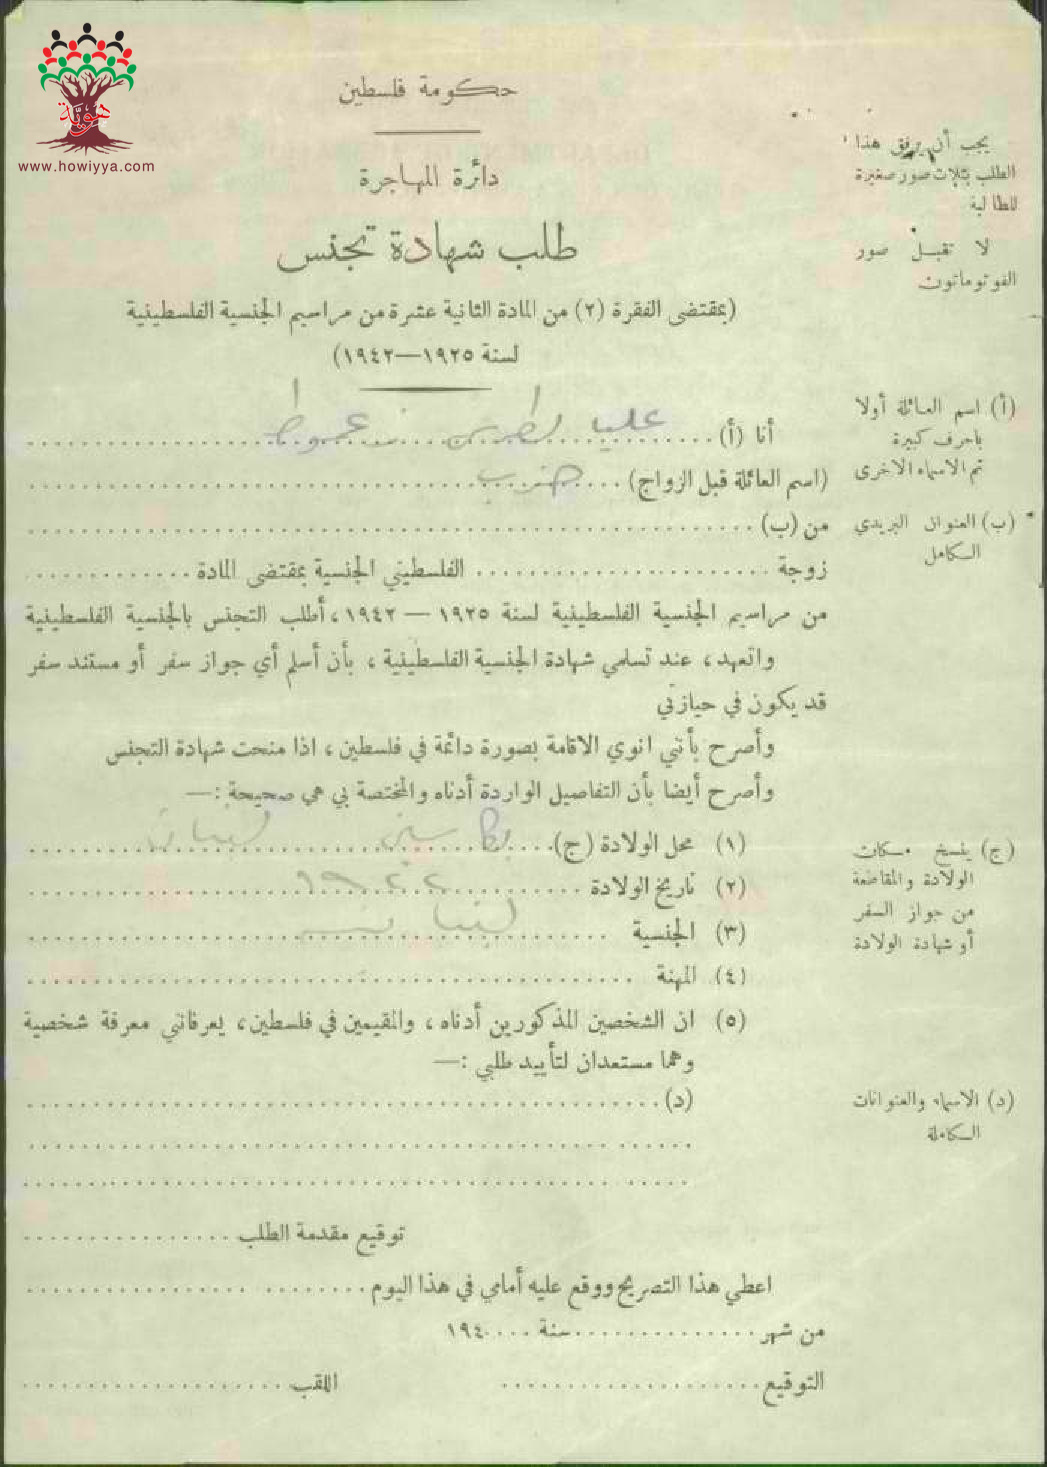 هوية
www.howiyya.com
حكومة فلسطين
دائرة المهاجرة
طلب شهادة تجنس
(بمقتضى الفقرة (٢) من المادة الثانية عشرة من مراسيم الجنسية الفلسطينية
لسنة ١٩٢٥—١٩٤٢)
يجب أن يرفق هذا
الطلب بثلاث صور صغيرة
للطالبة
لا تقبل صور
الفوتوماتون
أنا (أ) عليا بطرس
(أ) اسم العائلة أولا
باحرف كبيرة
ثم الاسماء الاخرى
(اسم العائلة قبل الزواج)
من (ب)
(ب) العنوان البريدي
الكامل
زوجة الفلسطيني الجنسية بمقتضى المادة
من مراسيم الجنسية الفلسطينية لسنة ١٩٢٥ — ١٩٤٢، أطلب التجنس بالجنسية الفلسطينية
واتعهد، عند تسلمي شهادة الجنسية الفلسطينية، بأن أسلم أي جواز سفر أو مستند سفر
قد يكون في حيازتي
وأصرح بأنني انوي الاقامة بصورة دائمة في فلسطين، اذا منحت شهادة التجنس
وأصرح أيضا بأن التفاصيل الواردة أدناه والمختصة بي هي صحيحة :—
(١) محل الولادة (ج) بكاسين لبنان
(٢) تاريخ الولادة ١٩٢٢
(٣) الجنسية لبنانيه
(٤) المهنة
(ج) ينسخ مكان
الولادة والمقاطعة
من جواز السفر
أو شهادة الولادة
(٥) ان الشخصين المذكورين أدناه، والمقيمين في فلسطين، يعرفانني معرفة شخصية
وهما مستعدان لتأييد طلبي :—
(د)
(د) الاسماء والعنوانات
الكاملة
توقيع مقدمة الطلب
اعطي هذا التصريح ووقع عليه أمامي في هذا اليوم
من شهر سنة ١٩٤
التوقيع اللقب